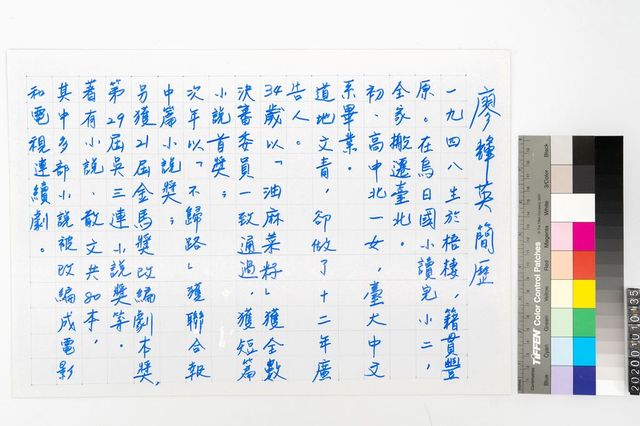 廖輝英簡歷
一九四八生於梧棲，籍貫豐
原。在烏日國小讀完小二，
全家搬遷臺北。
初、高中北一女，臺大中文
系畢業。
道地文青，卻做了十二年廣
告人。
34歲以「油麻菜籽」獲全數
決審委員一致通過，獲短篇
小說首獎；
次年以「不歸路」獲聯合報
中篇小說獎；
另獲21屆金馬獎改編劇本獎，
第29屆吳三連小說獎等。
著有小說、散文共80本，
其中多部小說被改編成電影
和電視連續劇。
TIFFEN Color Control Patches
Black
3/Color
White
Magenta
Red
Yellow
Green
Cyan
Blue
20200101035